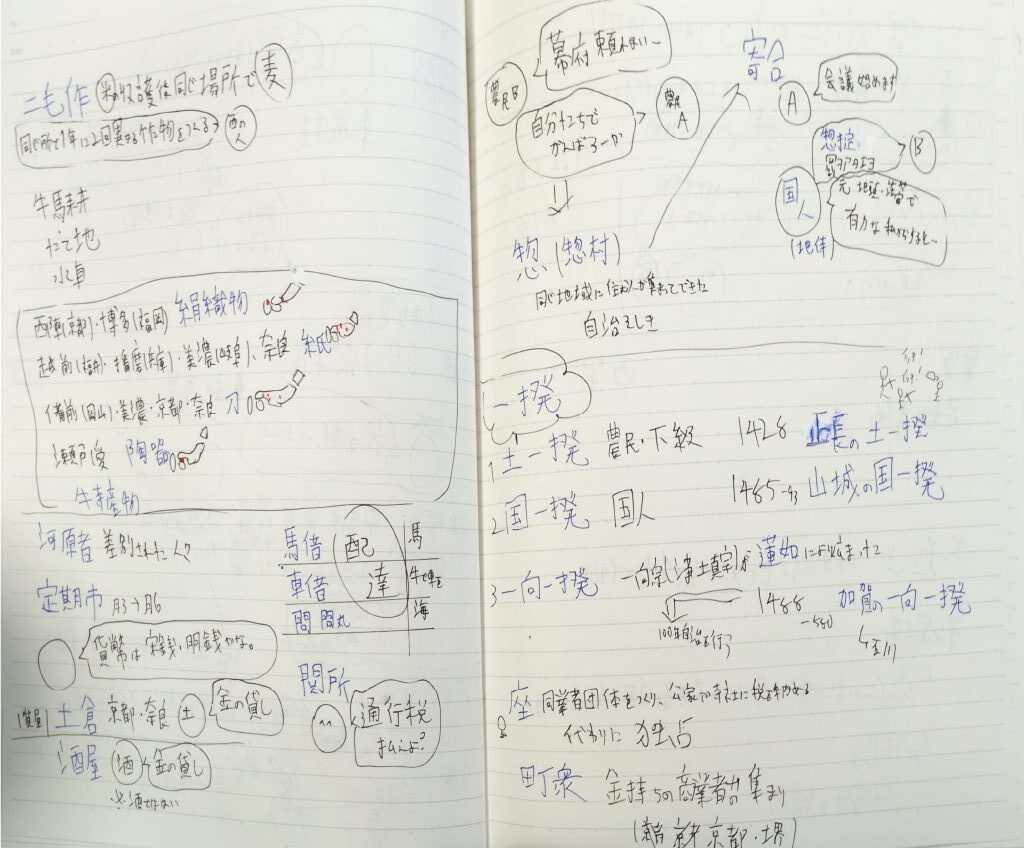 二毛作 米の収護後同じ場所で麦
同じ所で1年に2回異なる作物をつくる
西の人
牛馬耕
たて地
水車
西陣(京都)・博多(福岡) 絹織物
越前(福井)・播磨(兵庫)・美濃(岐阜)、奈良 紙
備前(岡山)・美濃・京都・奈良 刀
瀬戸(愛 陶器
特産物
河原者 差別された人々
定期市 月3→月6
貨幣は宋銭、明銭やな。
(質屋) 土倉 京都・奈良 土 金の貸し
酒屋 酒 金の貸し
※酒ではない
馬借 配達 馬
車借
問 問丸 海
関所
通行税
払えよ?
幕府頼れない〜
農民B
自分たちで
がんばろーか
農民A
惣(惣村)
同じ地域に住む人が集まってできた
自治そしき
寄合
A 会議始めます
惣掟
罰ヲアタエヨ
B
国人
(地侍)
元 地頭・
有力な私が
一揆
1土一揆 農民・下級 1428 正長の土一揆
2国一揆 国人 1485〜93 山城の国一揆
3一向一揆 一向宗(浄土真宗)が蓮如により広まった
1488 加賀の一向一揆
100年自治を行う
石川
座 同業者団体をつくり、公家や寺社に税を納める
代わりに 独占
町衆 金持ちの商業者の集まり
京都・堺)